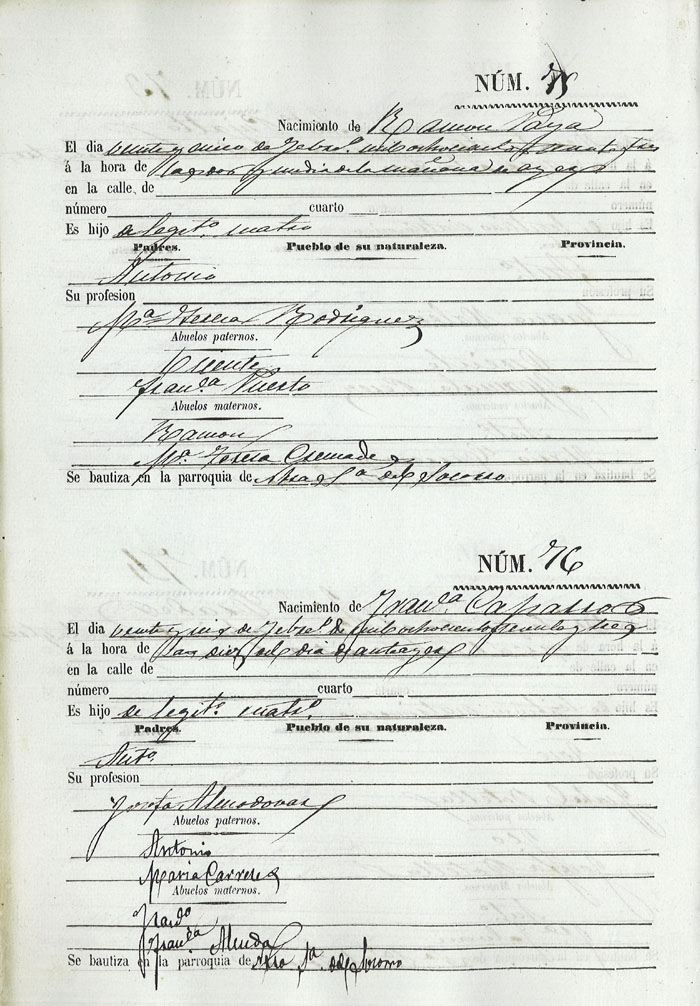 NÚM. 75
Nacimiento de Ramon Payá
El dia veinte y cinco de Febr.º mil ochocientos
á la hora de las dos y media de la mañana de ayer
en la calle de
número cuarto
Es hijo de legit.º matr.º
Padres. Pueblo de su naturaleza. Provincia.
Antonio
Su profesion
M.ª Teresa Rodriguez
Abuelos paternos.
Vicente
Fran.ca Puerto
Abuelos maternos.
Ramon
M.ª Teresa Cremades
Se bautiza en la parroquia de Ntra S.ª del Socorro
NÚM. 76
Nacimiento de Fran.ca
El dia veinte y seis de Febr.º de mil ochocientos
á la hora de las diez del dia de antayer
en la calle de
número cuarto
Es hijo de legit.º matr.º
Padres. Pueblo de su naturaleza. Provincia.
Ant.º
Su profesion
Josefa Almodovar
Abuelos paternos.
Antonio
Maria Carreres
Abuelos maternos.
Fran.co
Fran.ca
Se bautiza en la parroquia de Ntra S.ª del Socorro